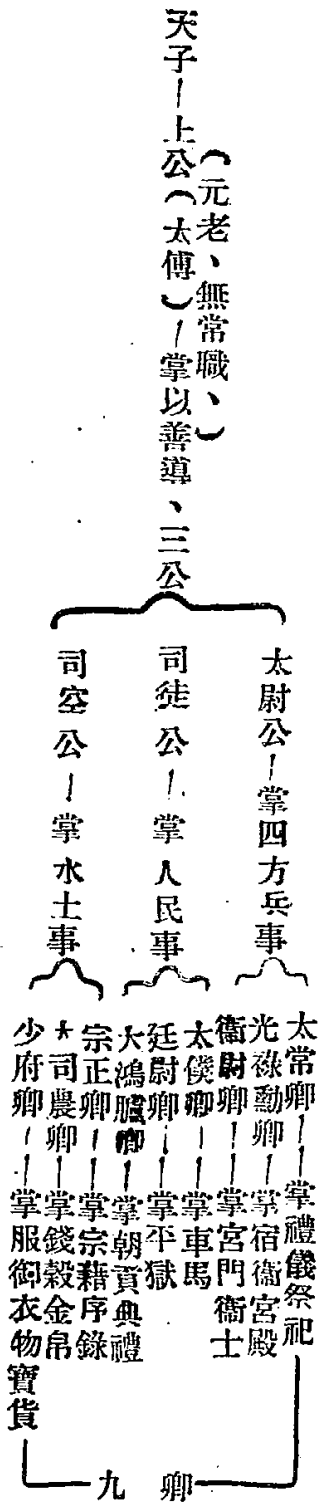 天子—上公(太傅)—掌以善導、三公
(元老、無常職、)
太尉公—掌四方兵事
司徒公—掌人民事
司空公—掌水土事
太常卿—掌禮儀祭祀
光祿勳卿—掌宿衞宮殿
衞尉卿—掌宮門衞士
太僕卿—掌車馬
廷尉卿—掌平獄
大鴻臚卿—掌朝貢典禮
宗正卿—掌宗藉序錄
大司農卿—掌錢穀金帛
少府卿—掌服御衣物寶貨
九卿